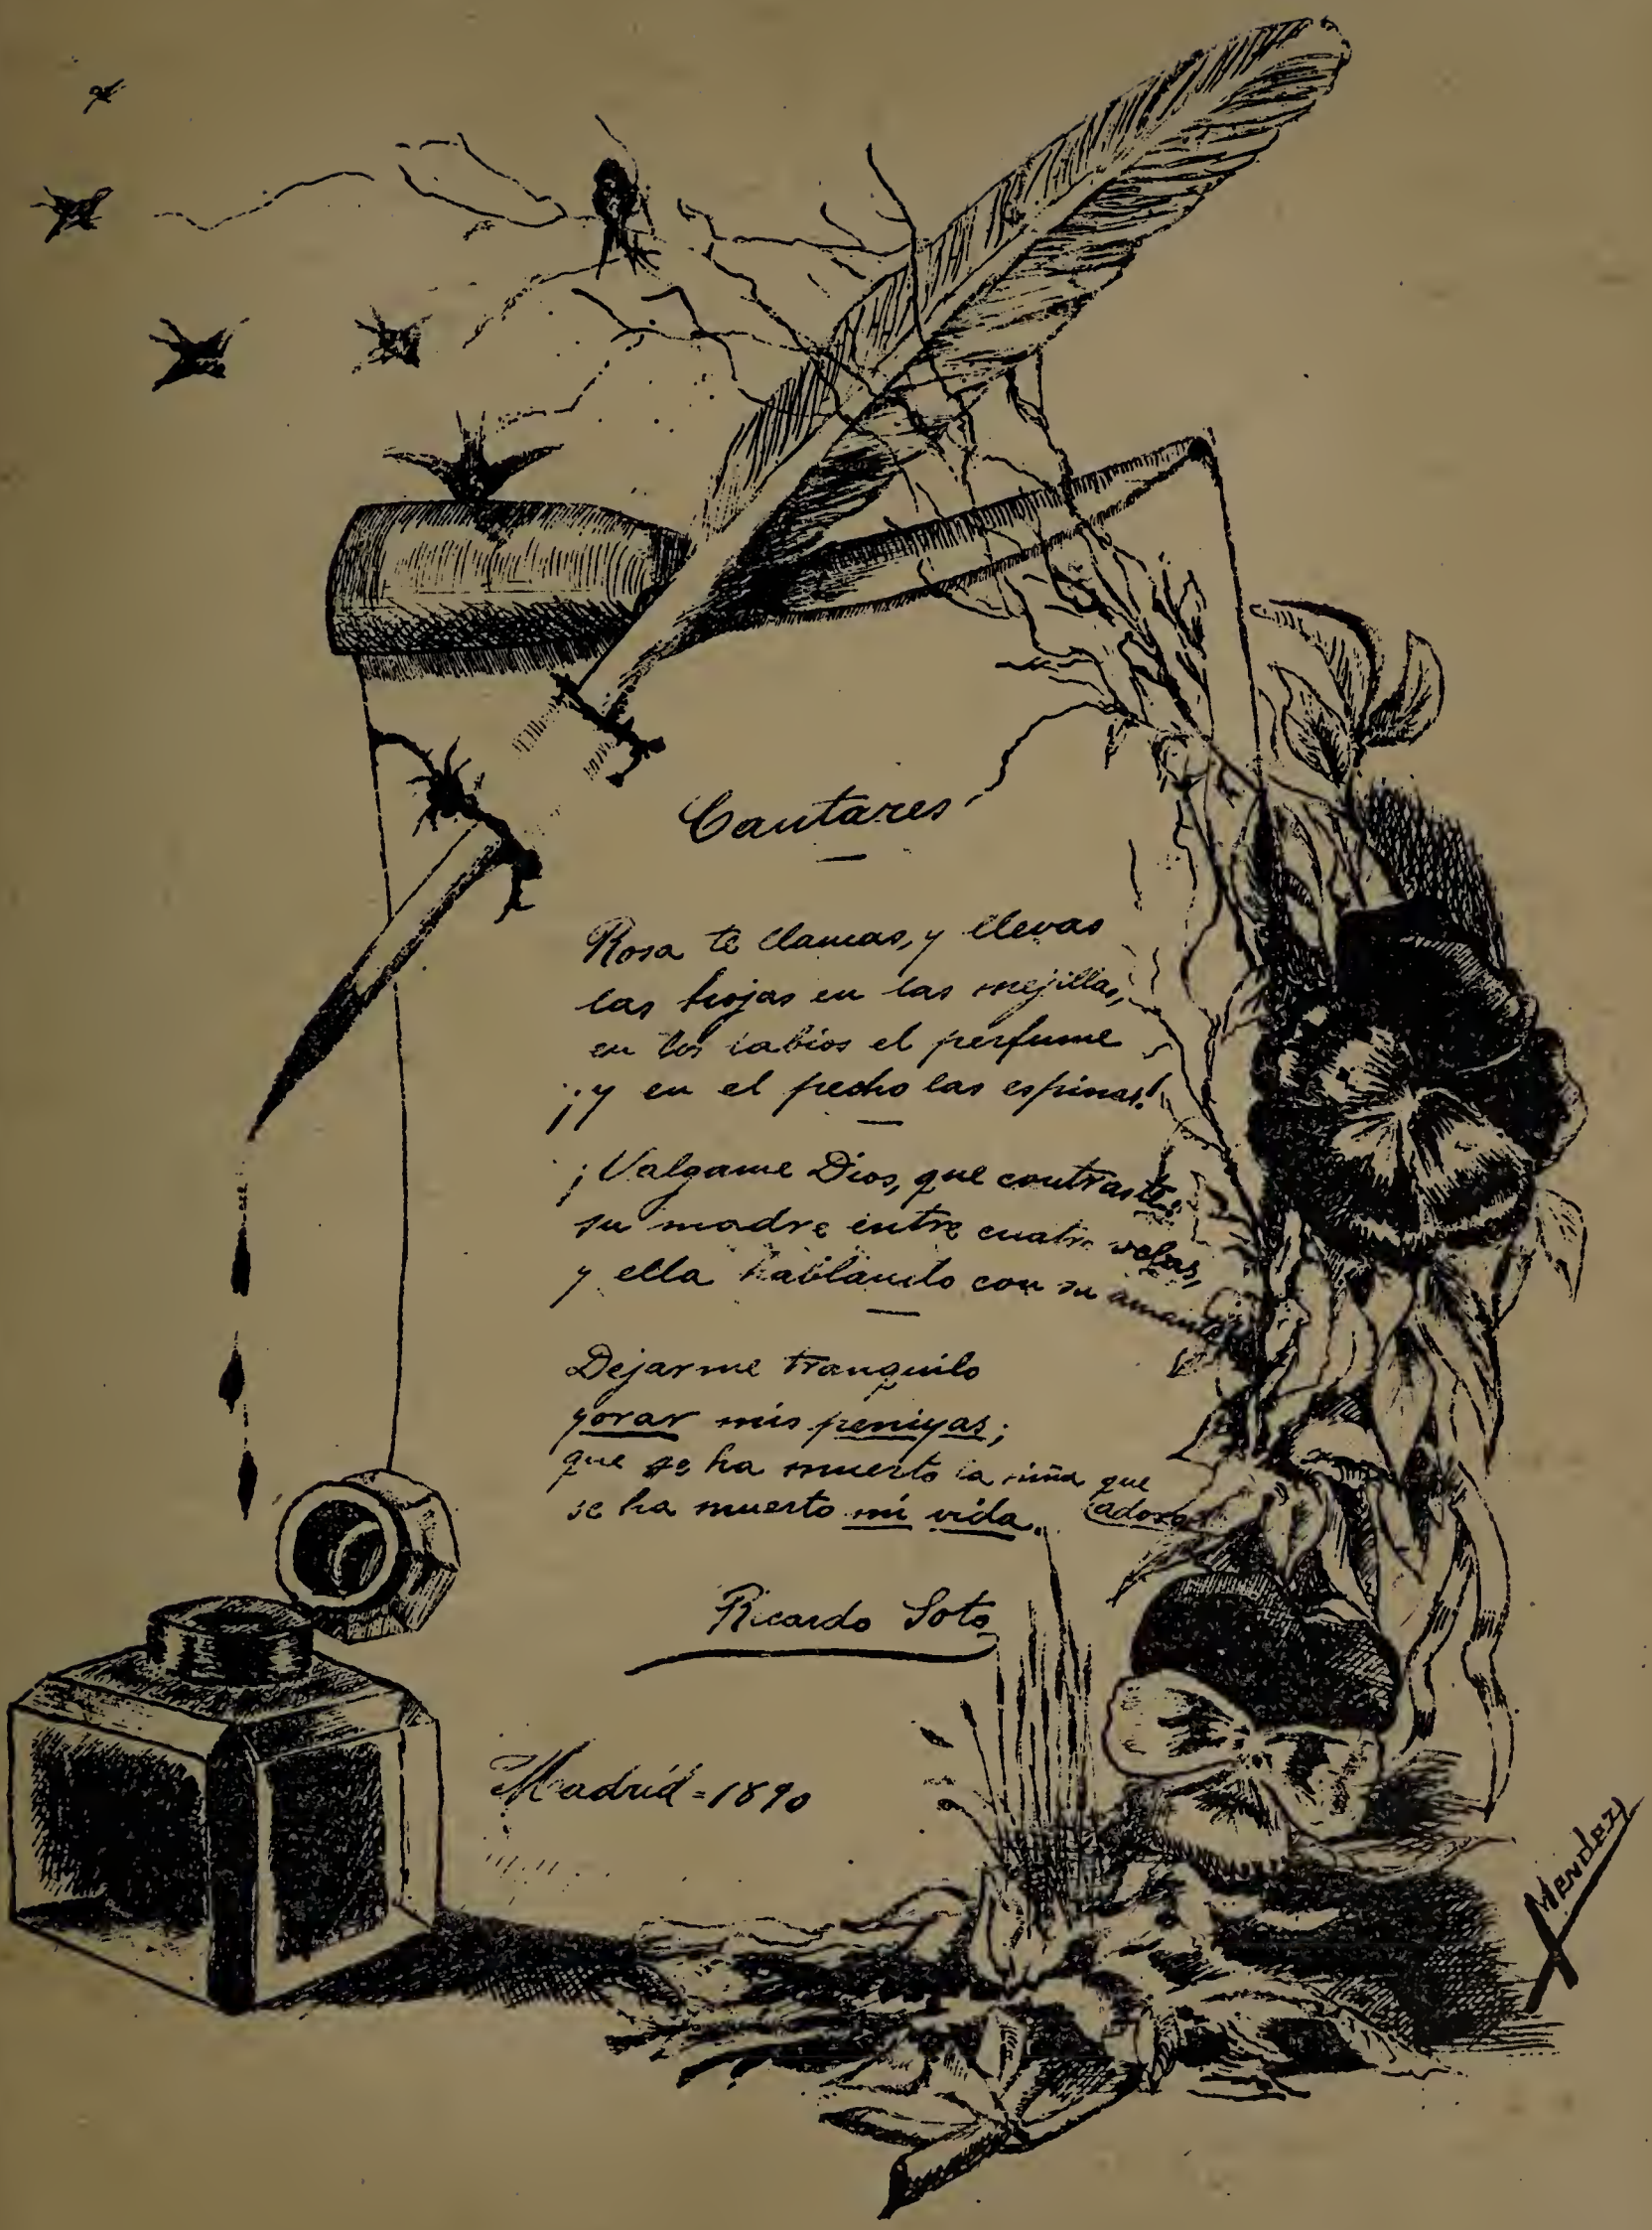 Cantares
Rosa te llamas, y llevas
las hojas en las mejillas,
en los labios el perfume
¡y en el pecho las espinas!
¡Valgame Dios, que contraste!
su madre entre cuatro velas,
y ella hablando con su amante
Dejarme tranquilo
yorar mis peniyas;
que se ha muerto la niña que
(adoro
se ha muerto mi vida.
Ricardo Soto
Madrid = 1890
Mendez